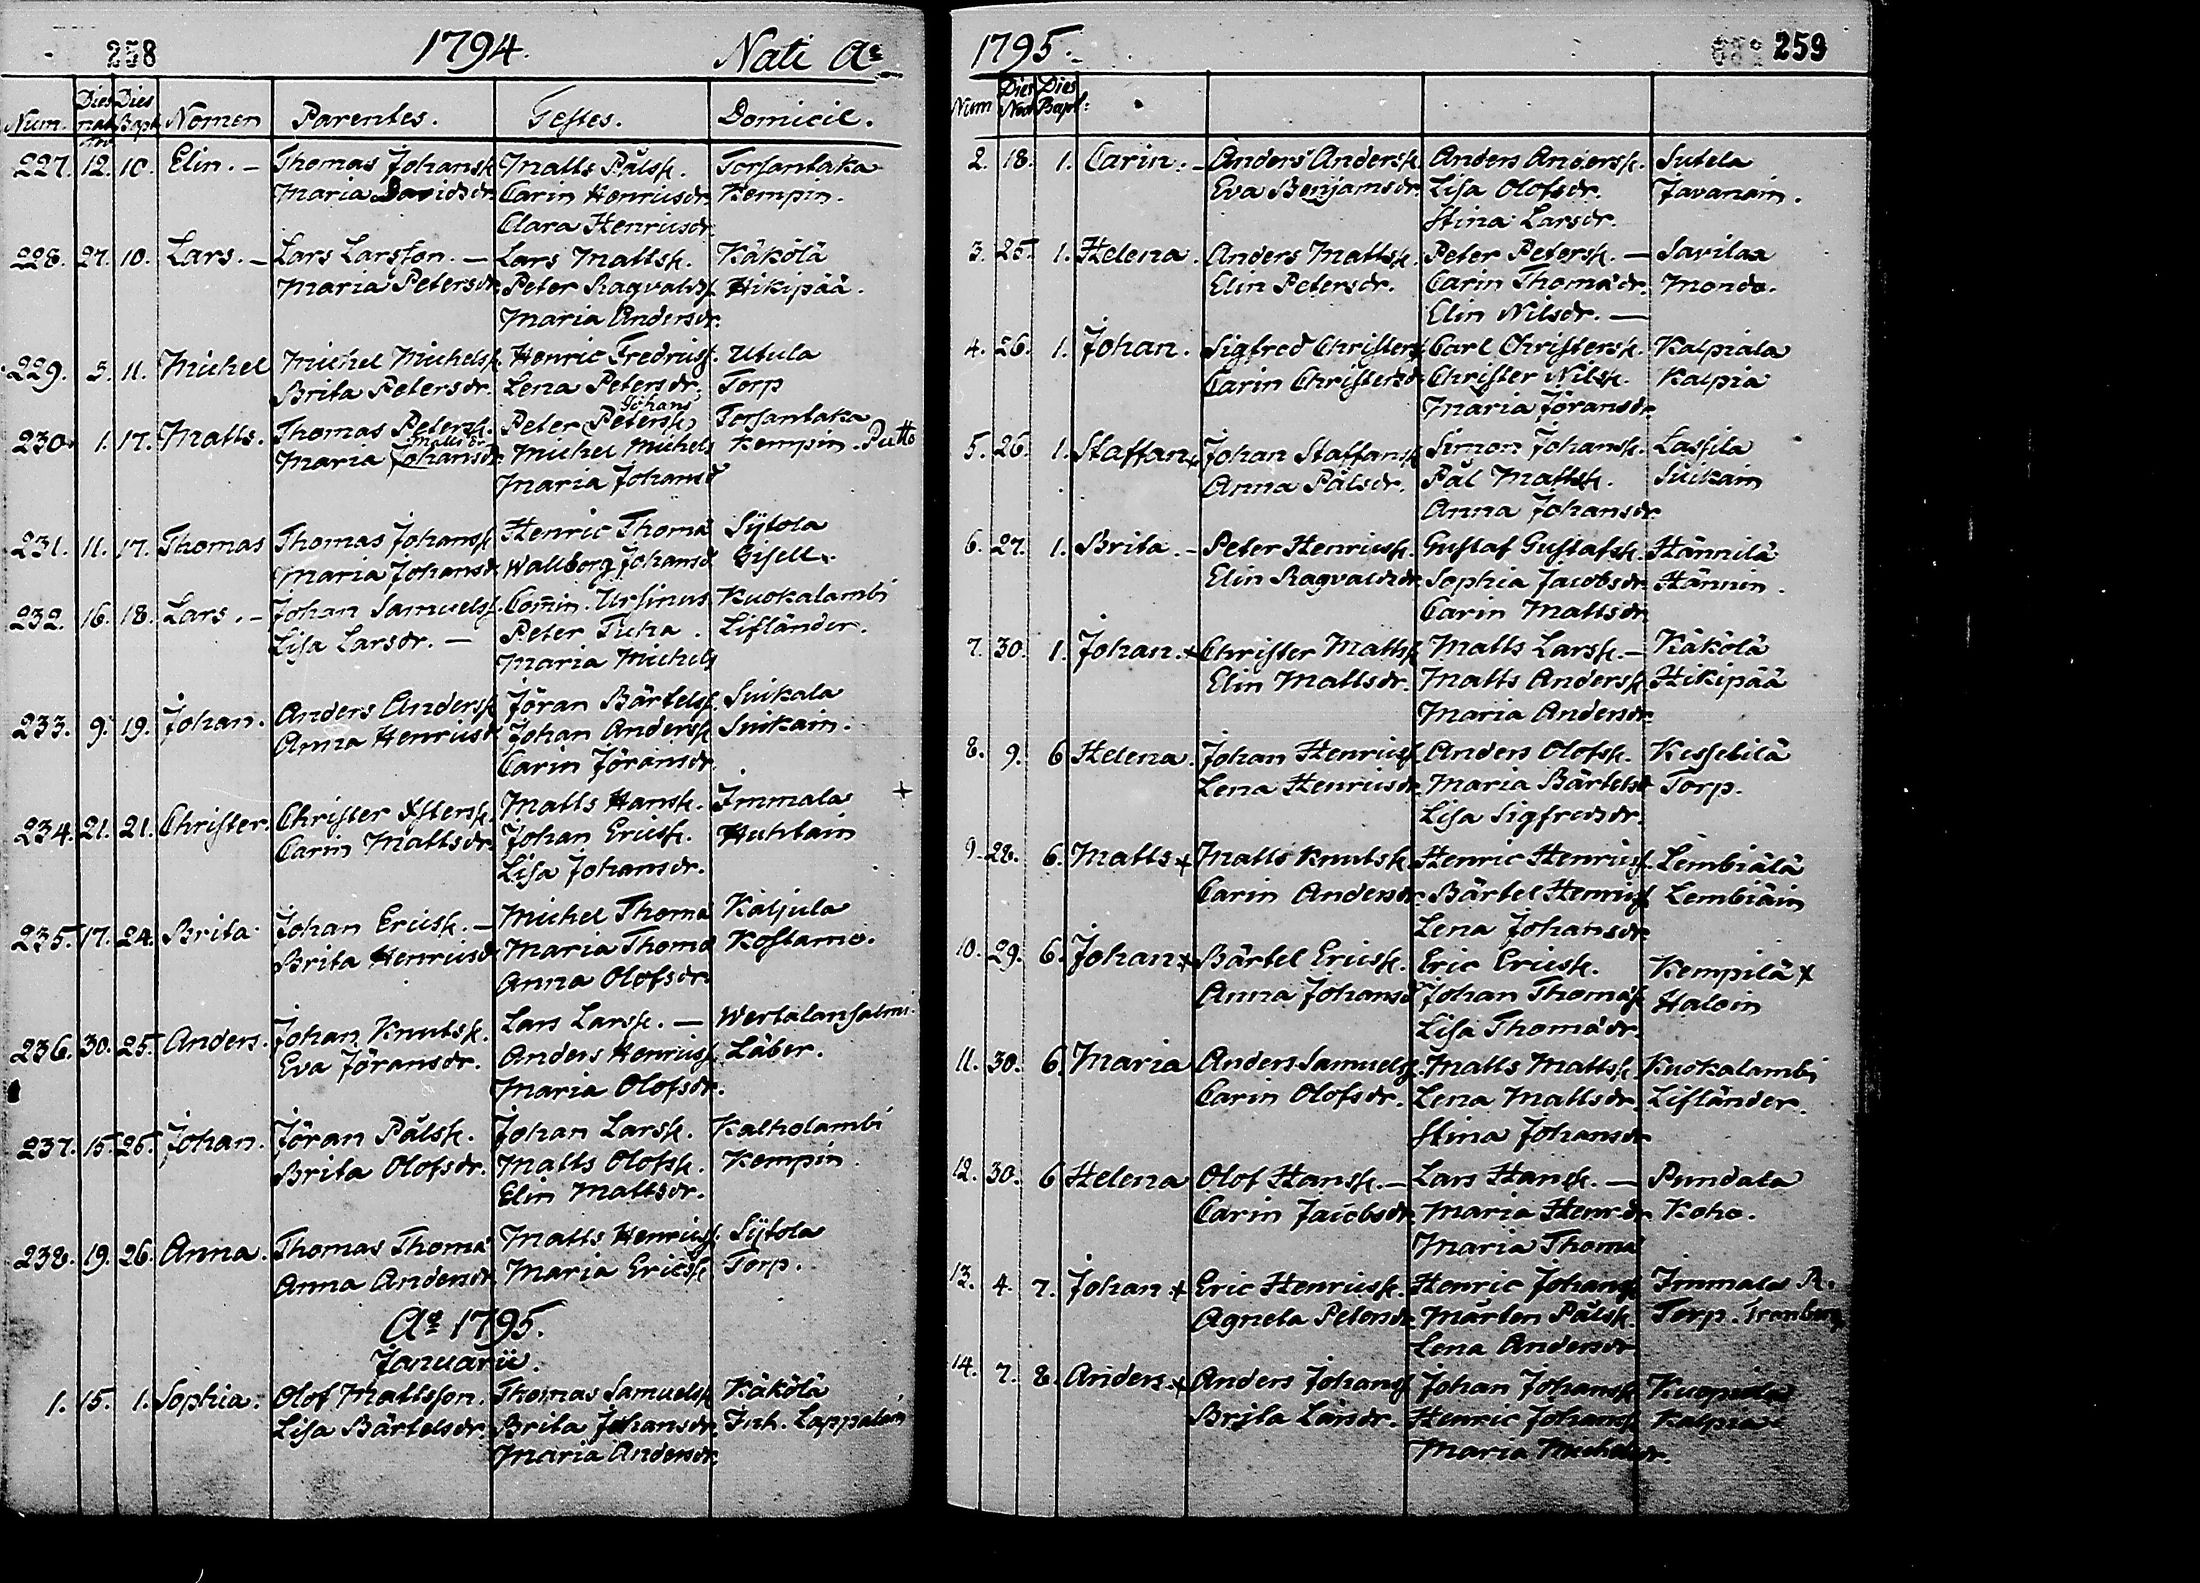 258 1794. Nati Ao
Num. Dies nat. Dies Bapt. Nomen Parentes. Testes. Domicil.
227. 12. 10. Elin. – Thomas Johansk Matts Pålsk. Torsantaka
Maria Davidsdr Carin Henricsdr Kempin.
Clara Henricsdr.
228. 27. 10. Lars. – Lars Larsson. – Lars Mattsk. Käkölä
Maria Petersdr. Peter Ragvalds Hikipää.
Maria Andersdr.
229. 5. 11. Michel Michel Michelsk. Henric Fredricsk. Utula
Brita Petersdr. Lena Petersdr. Torp
Johans
230. 1. 17. Matts. Thomas Petersk. Peter (Petersk) Torsantaka
Mattsdr
Maria Johansdr. Michel Michels Kempin. Putto
Maria Johansd
231. 11. 17. Thomas Thomas Johansk Henric Thoma Sÿtola
Maria Johansdr. Wallborg Johansd Gisell.
232. 16. 18. Lars. – Johan Samuelsk. Com̄in. Ursinus Kuokalambi
Lisa Larsdr. – Peter Tuha. Lifländer.
Maria Michels
233. 9. 19. Johan. Anders Andersk Jöran Bärtelsk. Suikala
Anna Henricsd Johan Andersk Suikain.
Carin Jöransdr.
234. 21. 21. Christer. Christer Xstersk. Matts Hansk. Immala +
Carin Mattsdr. Johan Ericsk. Huhtain
Lisa Johansdr.
235. 17. 24. Brita Johan Ericsk. – Michel Thoma Kaljula
Brita Henricsd Maria Thoma Kostamo.
Anna Olofsdr.
236. 30. 25. Anders. Johan Knutsk. Lars Larsk. – Wertalansalmi.
Eva Jöransdr. Anders Henricsk Läber.
Maria Olofsdr.
237. 15. 25. Johan. Jöran Pålsk. Johan Larsk. Kalholambi
Brita Olofsdr. Matts Olofsk. Kempin.
Elin Mattsdr.
238. 19. 26. Anna. Thomas Thoma Matts Henricsk. Sÿtola
Anna Andersdr Maria Ericsk Torp.
Ao 1795.
Januarii.
1. 15. 1. Sophia. Olof Mattsson. Thomas Samuelsk Käkölä
Lisa Bärtelsdr. Brita Johansdr. Inh. Lappalain
Maria Andersdr.
1795. 259
Num Dies Nat Dies Bapt:
2. 18. 1. Carin. – Anders Andersk Anders Andersk. Sutela
Eva Benjamsdr. Lisa Olofsdr. Javanain.
Stina Larsdr.
3. 25. 1. Helena. Anders Mattsk. Peter Petersk. – Savilaa
Elin Petersdr. Carin Thomadr. Mondo.
Elin Nilsdr. –
4. 26. 1. Johan. Sigfred Christersk Carl Christersk. Kalpiala
Carin Christersdr Christer Nilsk. Kalpia
Maria Jöransdr
5. 26. 1. Staffan + Johan Staffansk Simon Johansk. Lassila
Anna Pålsdr. Pål Mattsk. Suikain
Anna Johansdr.
6. 27. 1. Brita. – Peter Henricsk. Gustaf Gustafsk. Hännilä
Elin Ragvaldsdr Sophia Jacobsdr. Hännin.
Carin Mattsdr
7. 30. 1. Johan. + Christer Mattsk Matts Larsk. – Käkölä
Elin Mattsdr. Matts Andersk. Hikipää
Maria Andersdr.
8. 9. 6. Helena. Johan Henricsk Anders Olofsk. Kessebilä
Lena Henricsdr Maria Bärtelsd Torp.
Lisa Sigfredsdr.
9. 28. 6. Matts + Matts Knutsk. Henric Henricsk. Lembiälä
Carin Andersdr. Bärtel Henricsk Lembiäin
Lena Johansdr
10. 29. 6. Johan + Bärtel Ericsk. Eric Ericsk. Kempilä +
Anna Johansd Johan Thomask Haloin
Lisa Thomadr.
11. 30. 6. Maria Anders Samuelsk. Matts Mattsk. Kuokalambi
Carin Olofsdr. Lena Mattsdr. Lifländer.
Stina Johansdr
12. 30. 6 Helena Olof Hansk. – Lars Hansk. – Pundala
Carin Jacobsdr. Maria Henr.dr. Koho.
Maria Thoma
13. 4. 7. Johan + Eric Henricsk. Henric Johansk Immala R.
Agneta Petersdr. Mårten Pålsk. Torp.
Lena Andersdr
14. 7. 8. Anders. + Anders Johansk Johan Johansk.
Brita Larsdr. Henric Johansk Kalpia.
Maria Michelsdr.